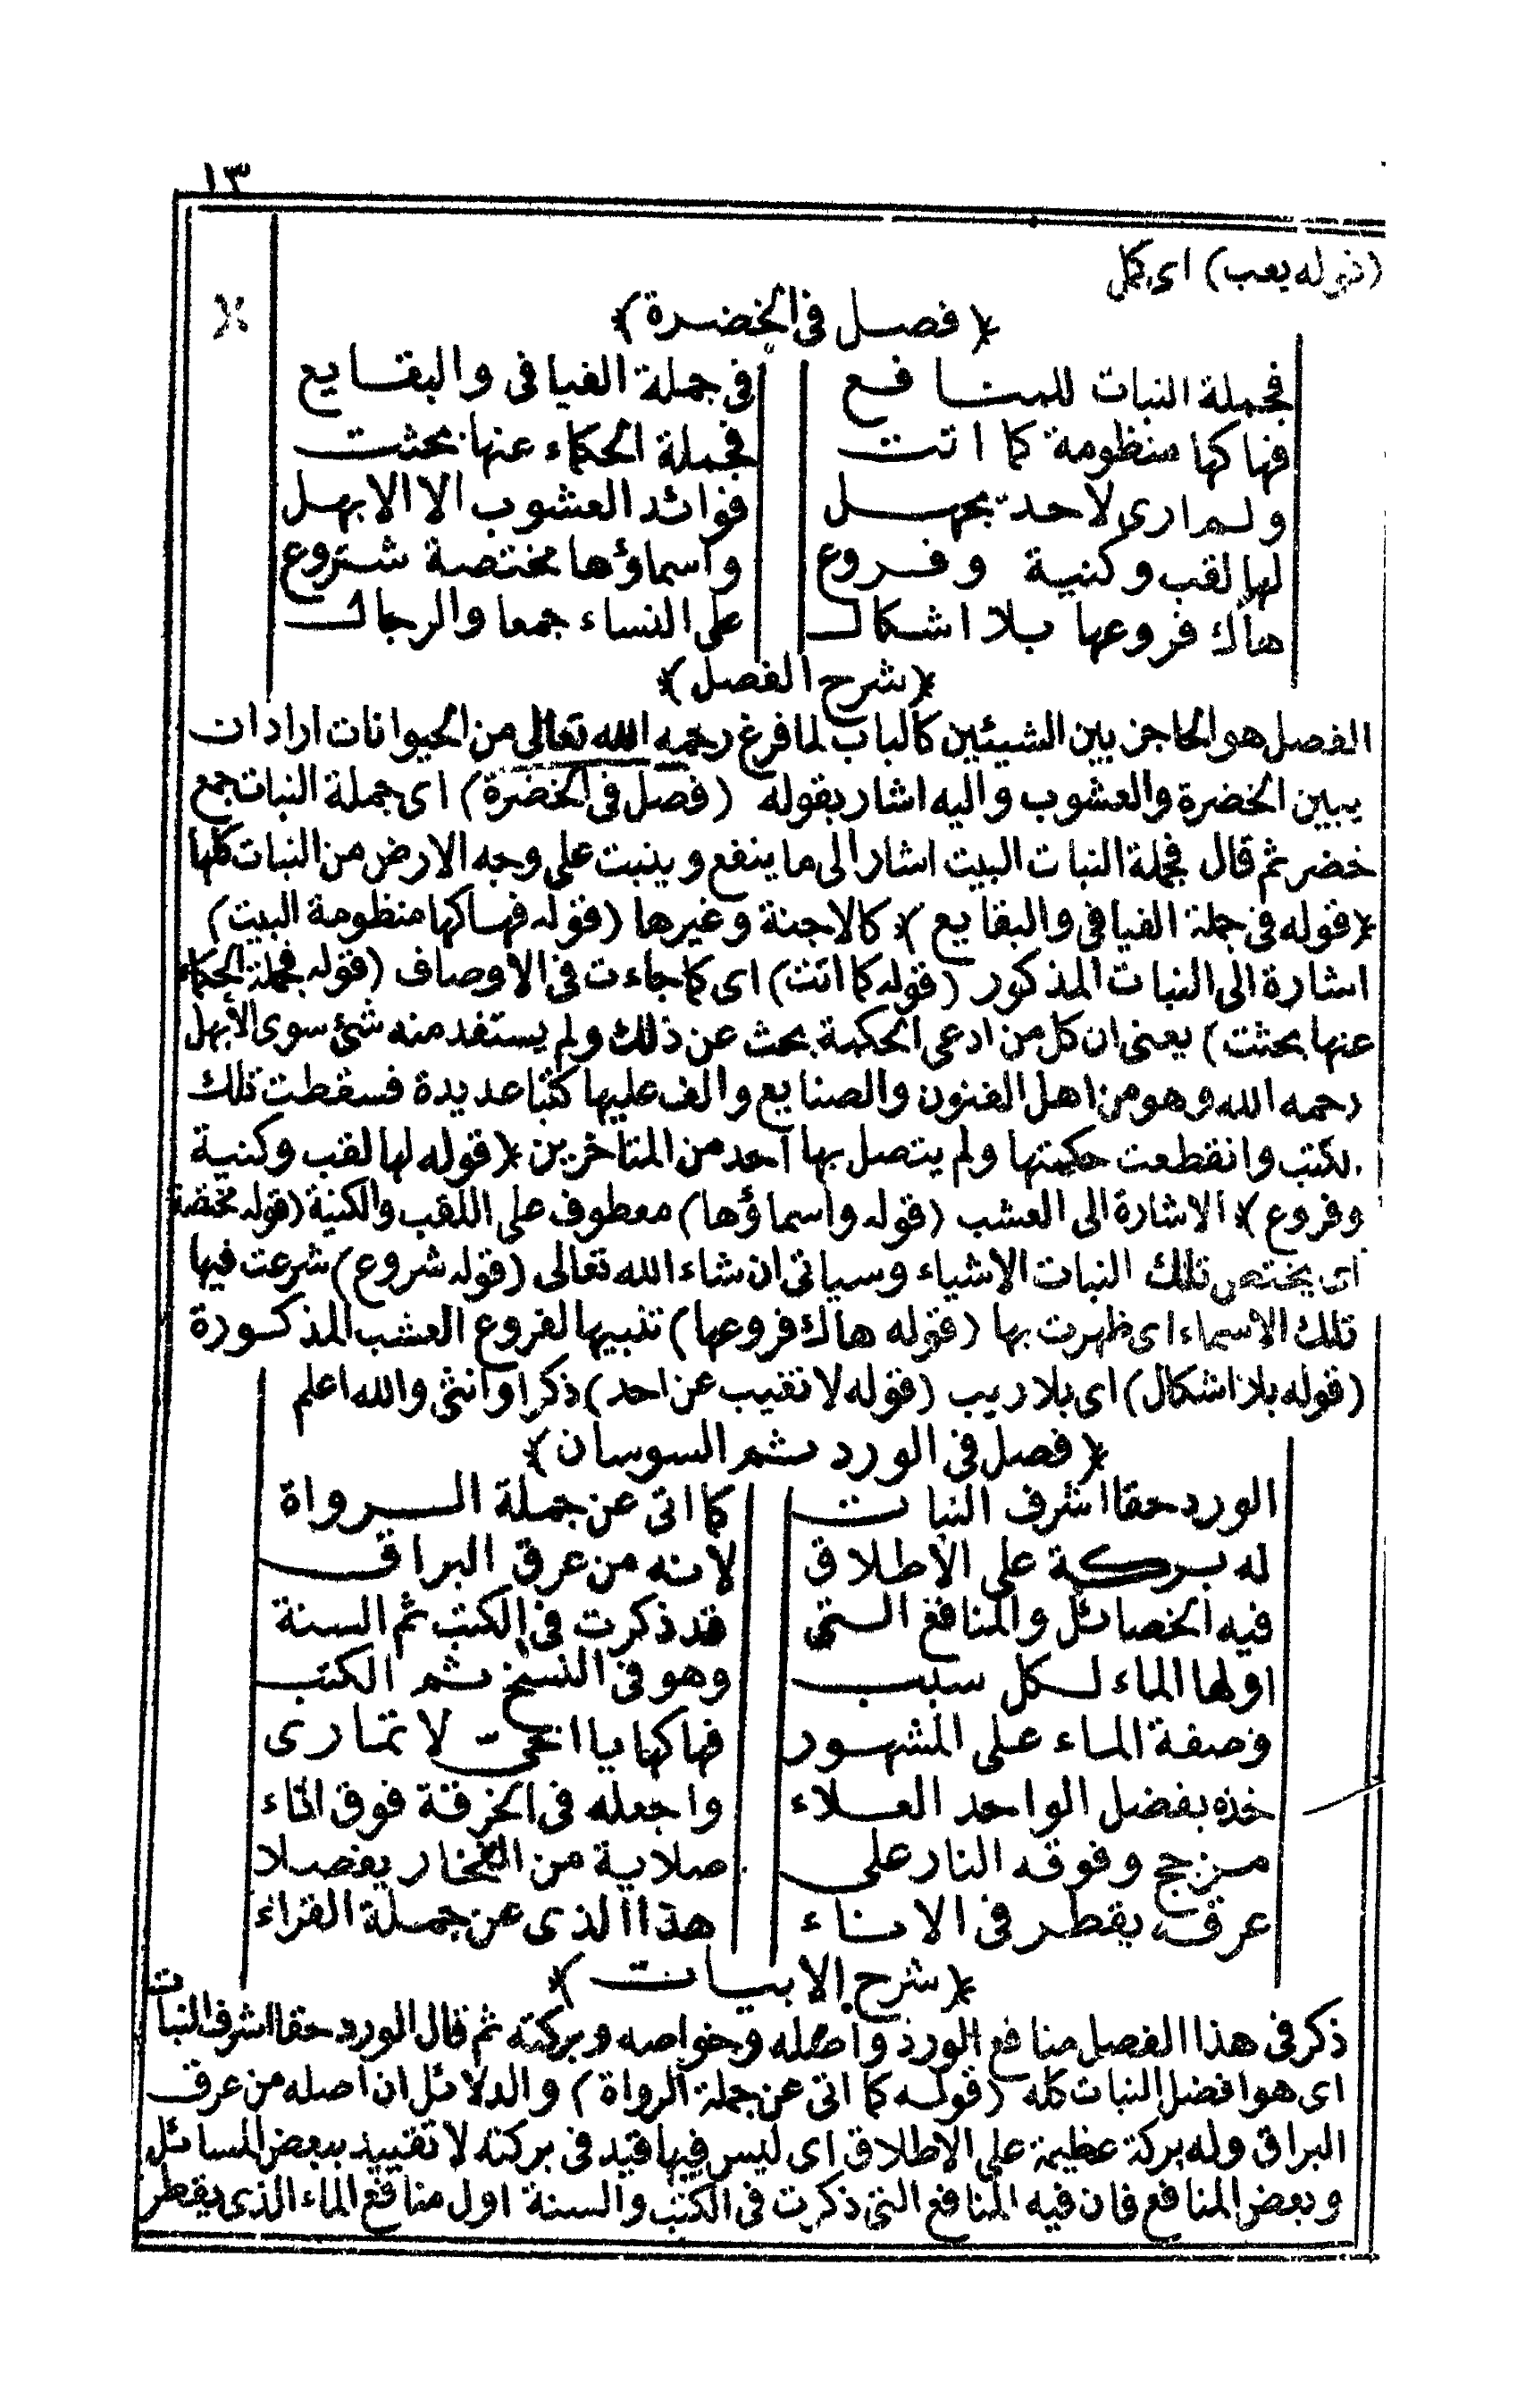 ١٣
(قوله يعب) اى كل
﴿فصل فى الخضرة﴾
فجملة النبات للمنافع فى جملة الفيافى والبقايع
فهاكها منظومة كما اتت فجملة الحكماء عنها بحثت
ولم ارى لاحد بجهل فوائد العشوب الا الابهل
لها لقب وكنية وفروع واسماؤها مختصة شروع
هاك فروعها بلا اشكال على النساء جمعا والرجال
﴿شرح الفصل﴾
الفصل هو الحاجز بين الشيئين كالباب لما فرغ رحمه الله تعالى من الحيوانات اراد ان
يبين الخضرة والعشوب واليه اشار بقوله (فصل فى الخضرة) اى جملة النبات جمع
خضر ثم قال فجملة النبات البيت اشار الى ما ينفع وينبت على وجه الارض من النبات كلها
﴿قوله فى جملة الفيافى والبقايع﴾ كالاجنة وغيرها (قوله فهاكها منظومة البيت)
اشارة الى النبات المذكور (قوله كما اتت) اى كما جاءت فى الاوصاف (قوله فجملة الحكماء
عنها بحثت) يعنى ان كل من ادعى الحكمة بحث عن ذلك ولم يستفد منه شئ سوى الأبهل
رحمه الله وهو من اهل الفنون والصنايع والف عليها كتبا عديدة فسقطت تلك
لكتب وانقطعت حكمتها ولم يتصل بها احد من المتاخرين ﴿قوله لها لقب وكنية
وفروع﴾ الاشارة الى العشب (قوله واسماؤها) معطوف على اللقب والكنية (قوله مختصة
اى يختص تلك النبات الاشياء وسياتى ان شاء الله تعالى (قوله شروع) شرعت فيها
تلك الاسماء اى ظهرت بها (قوله هاك فروعها) تنبيها لفروع العشب المذكورة
(قوله بلا اشكال) اى بلا ريب (قوله لا تغيب عن احد) ذكرا وانثى والله اعلم
﴿فصل فى الورد ثم السوسان﴾
الورد حقا اشرف النبات كما اتى عن جملة الرواة
له بركة على الاطلاق لانه من عرق البراق
فيه الخصائل والمنافع التى قد ذكرت فى الكتب ثم السنة
اولها الماء لكل سبب وهو فى النسخ ثم الكتب
وصفة الماء على المشهور فهاكها يا اخى لا تمارى
خذه بفضل الواحد العلاء واجعله فى الخرقة فوق اناء
مزجج وفوقه النار على صلاية من الفخار يفصلا
عرقه يقطر فى الاناء هذا الذى عن جملة القراء
﴿شرح الابيات﴾
ذكر فى هذا الفصل منافع الورد واصله وخواصه وبركته ثم قال الورد حقا اشرف النبات
اى هو افضل النبات كله (قوله كما اتى عن جملة الرواة) والدلائل ان اصله من عرق
البراق وله بركة عظيمة على الاطلاق اى ليس فيها قيد فى بركته لا تقييد ببعض المسائل
وبعض المنافع فان فيه المنافع التى ذكرت فى الكتب والسنة اول منافع الماء الذى يقطر